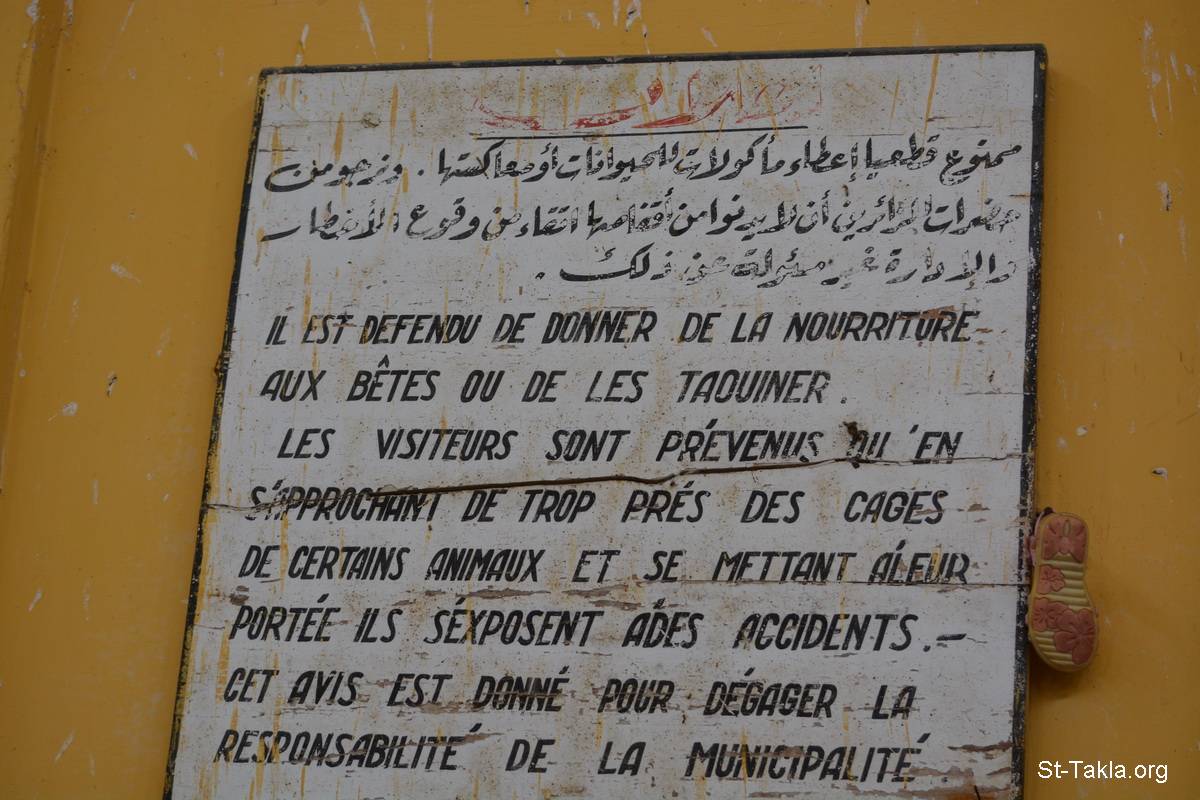 ممنوع قطعيا إعطاء مأكولات للحيوانات أو معاكستها . ونرجو من
حضرات الزائرين أن لا يدنوا من أقفاصها اتقاء من وقوع الأخطار
والإدارة غير مسئولة عن ذلك .
IL EST DEFENDU DE DONNER DE LA NOURRITURE
AUX BÊTES OU DE LES TAQUINER .
LES VISITEURS SONT PRÉVENUS QU'EN
S'APPROCHANT DE TROP PRÉS DES CAGES
DE CERTAINS ANIMAUX ET SE METTANT ÁLEUR
PORTÉE ILS SÉXPOSENT ÁDES ACCIDENTS .-
CET AVIS EST DONNÉ POUR DÉGAGER LA
RESPONSABILITÉ DE LA MUNICIPALITÉ .
St-Takla.org